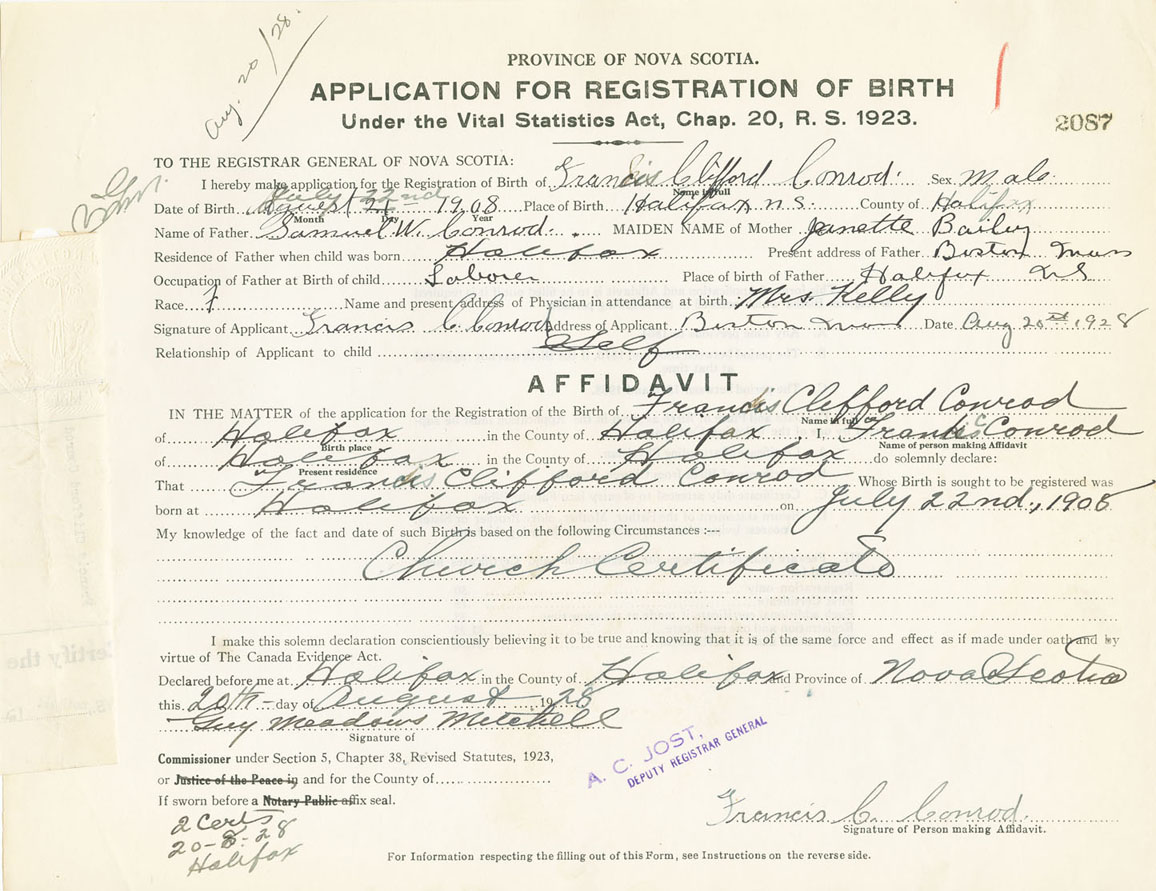 Aug. 20/28.
PROVINCE OF NOVA SCOTIA.
APPLICATION FOR REGISTRATION OF BIRTH
Under the Vital Statistics Act, Chap. 20, R. S. 1923.
2087
TO THE REGISTRAR GENERAL OF NOVA SCOTIA:
I hereby make application for the Registration of Birth of Francis Clifford Conrod. Sex Male
Name in full
July 22nd
Date of Birth August 1908 Place of Birth Halifax N.S. County of Halifax
Month Day Year
Name of Father Samuel W. Conrod. MAIDEN NAME of Mother Janette Bailey
Residence of Father when child was born Halifax Present address of Father Boston Mass
Occupation of Father at Birth of child Laborer Place of birth of Father Halifax N S
Race Name and present address of Physician in attendance at birth Mrs. Kelly
Signature of Applicant Francis C. Conrod Address of Applicant Boston Mass Date Aug 20th 1928
Relationship of Applicant to child Self
AFFIDAVIT
IN THE MATTER of the application for the Registration of the Birth of Francis Clifford Conrod
Name in full
of Halifax in the County of Halifax, I, Francis C Conrod
Birth place Name of person making Affidavit
of Halifax in the County of Halifax do solemnly declare:
Present residence
That Francis Clifford Conrod Whose Birth is sought to be registered was
born at Halifax on July 22nd., 1908
My knowledge of the fact and date of such Birth is based on the following Circumstances :---
Church Certificate
I make this solemn declaration conscientiously believing it to be true and knowing that it is of the same force and effect as if made under oath and by
virtue of The Canada Evidence Act.
Declared before me at Halifax in the County of Halifax and Province of Nova Scotia
this 20th day of August, 1928
Guy Meadows Mitchell
Signature of
Commissioner under Section 5, Chapter 38, Revised Statutes, 1923,
or Justice of the Peace in and for the County of
If sworn before a Notary Public affix seal.
A. C. JOST,
DEPUTY REGISTRAR GENERAL
2 Certs
20-8-28
Halifax
Francis C. Conrod.
Signature of Person making Affidavit.
For Information respecting the filling out of this Form, see Instructions on the reverse side.